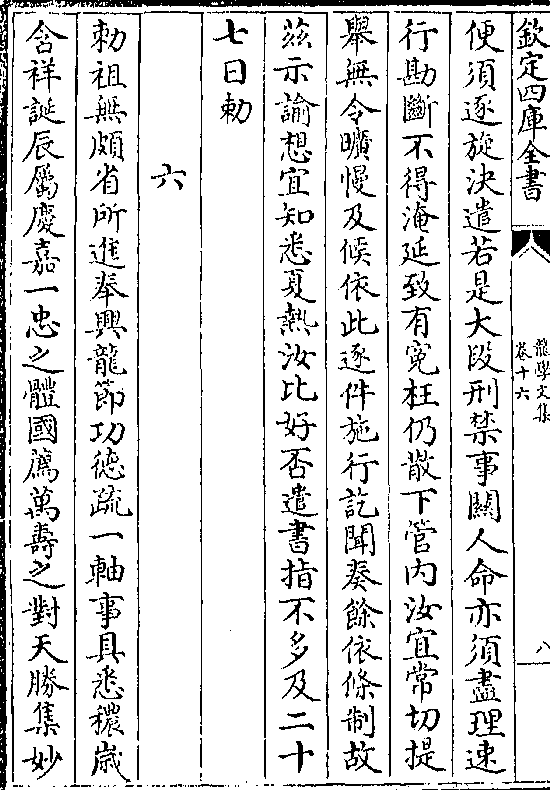 欽定四庫全書
龍學文集
卷十六
八
便須逐旋決遣若是大段刑禁事關人命亦須盡理速
行勘斷不得淹延致有寃枉仍散下管内汝宜常切提
舉無令曠慢及候依此逐件施行訖聞奏餘依條制故
茲示諭想宜知悉夏熱汝比好否遣書指不多及二十
七日勅
六
勅祖無頗省所進奉興龍節功德疏一軸事具悉穠歲
含祥誕辰屬慶嘉一忠之體國薦萬壽之對天勝集妙